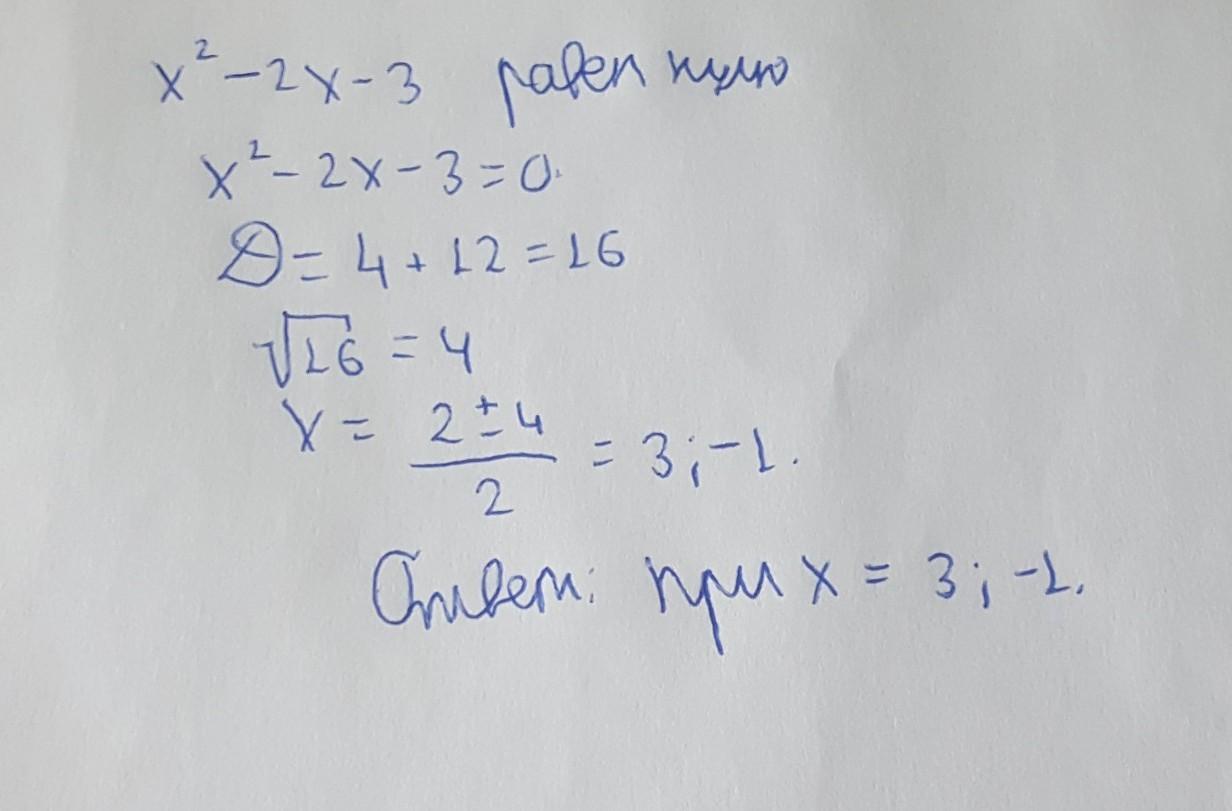 x² - 2x - 3 равен нулю
x² - 2x - 3 = 0.
D = 4 + 12 = 16
√16 = 4
x = (2 ± 4)/2 = 3; -1.
Ответ: при x = 3; -1.